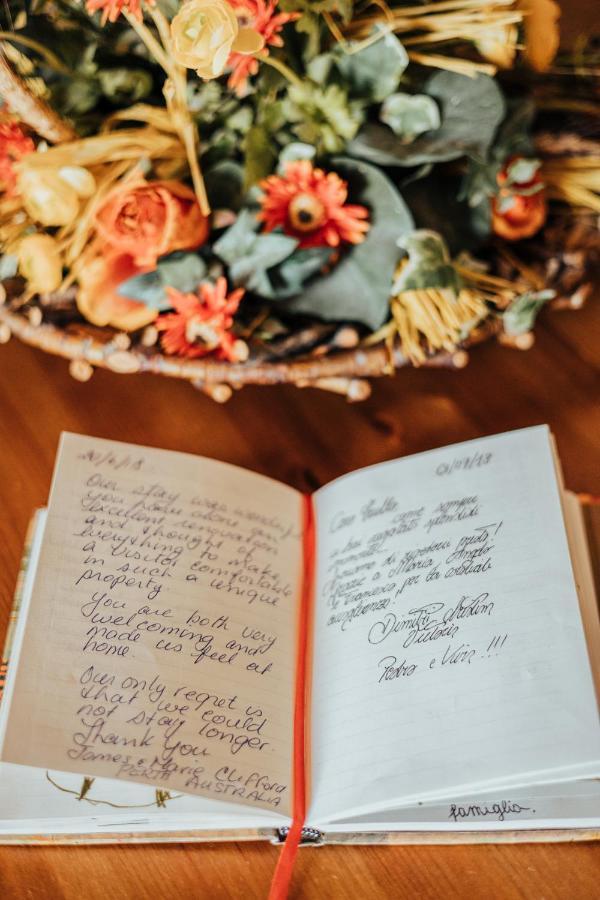 20/6/18
Our stay was wonderful
you have done an
excellent renovation
and thought of
everything to make
a visitor comfortable
in such a unique
property.
You are both very
welcoming and
made us feel at
home.
Our only regret is
that we could
not stay longer.
Thank you
James & Marie Clifford
PERTH AUSTRALIA
come sempre
ci hai regalato splendidi
momenti.
di
Grazie a Maria Angla
e Francesco per la cordiale
accoglienza.
Dimitri
Pedro e !!!
famiglia.